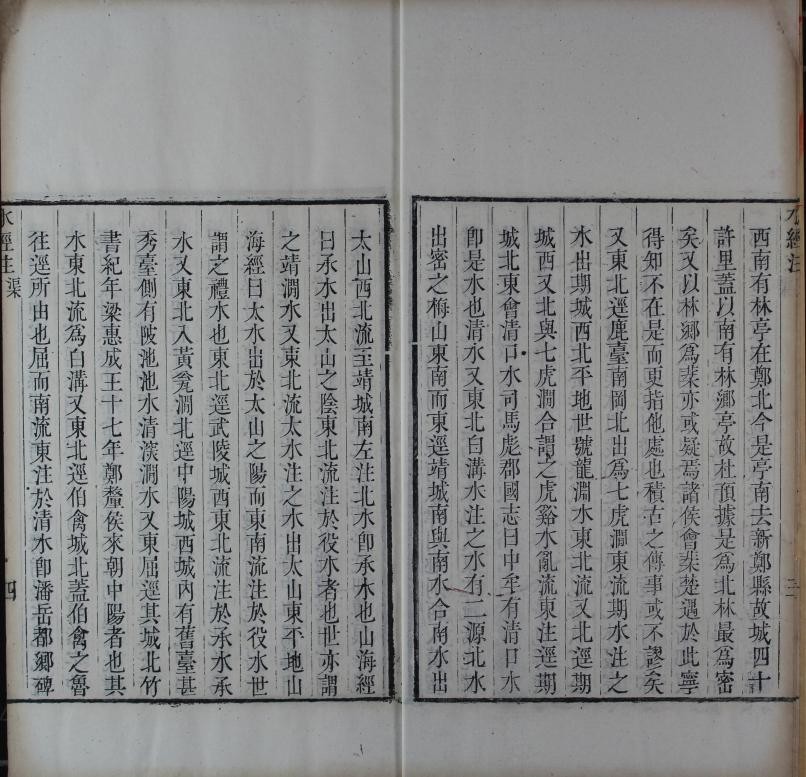 水經注
三
西南有林亭在鄭北今是亭南去新鄭縣故城四十
許里蓋以南有林鄉亭故杜預據是爲北林最爲密
矣又以林鄉爲棐亦或疑焉諸侯會棐楚遇於此寧
得知不在是而更指他處也積古之傳事或不謬矣
又東北逕鹿臺南岡北出爲七虎澗東流期水注之
水出期城西北平地世號龍淵水東北流又北逕期
城西又北與七虎澗合謂之虎谿水亂流東注逕期
城北東會清口水司馬彪郡國志曰中牟有清口水
卽是水也清水又東北白溝水注之水有二源北水
出密之梅山東南而東逕靖城南與南水合南水出
太山西北流至靖城南左注北水卽承水也山海經
曰承水出太山之陰東北流注於役水者也世亦謂
之靖澗水又東北流太水注之水出太山東平地山
海經曰太水出於太山之陽而東南流注於役水世
謂之禮水也東北逕武陵城西東北流注於承水承
水又東北入黃瓮澗北逕中陽城西城內有舊臺甚
秀臺側有陂池池水清深澗水又東屈逕其城北竹
書紀年梁惠成王十七年鄭釐侯來朝中陽者也其
水東北流爲白溝又東北逕伯禽城北蓋伯禽之魯
往逕所由也屈而南流東注於清水卽潘岳都鄉碑
水經注 渠
四